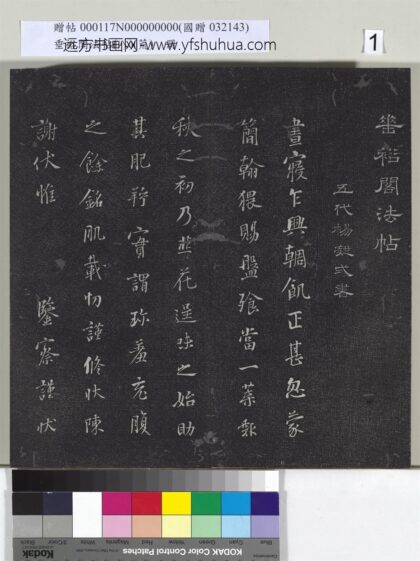 贈帖 000117N000000000(國贈 032143)
远方书画网-www.yfshuhua.com
1
法帖
五代楊凝式書
晝寢乍興輖飢正甚忽蒙
簡翰猥賜盤飧當一葉報
秋之初乃韭花逞味之始助
其肥羜實謂珍羞充腹
之餘銘肌載切謹修狀陳
謝伏惟 鑒察謹狀
Kodak
KODAK Color Control Patches
Blue
Cyan
Green
Yellow
Red
Magenta
White
3/Color
Black